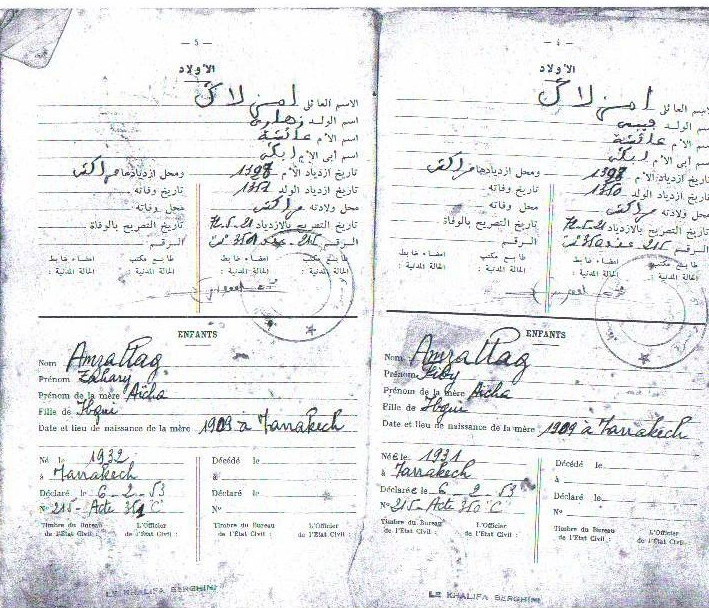 — 5 —
الأولاد
الاسم العائلي امزلاگ
اسم الولد زهاري
اسم الأم عائشة
اسم أبي الأم ابگي
تاريخ ازدياد الأم 1327 ومحل ازديادها مراكش
تاريخ ازدياد الولد 1351 تاريخ وفاته
محل ولادته مراكش محل وفاته
تاريخ التصريح بالازدياد تاريخ التصريح بالوفاة
الرقم 215 351 الرقم
طابع مكتب امضاء ضابط طابع مكتب امضاء ضابط
الحالة المدنية : الحالة المدنية : الحالة المدنية : الحالة المدنية :
ENFANTS
Nom Amzallag
Prénom Zahary
Prénom de la mère Aïcha
Fille de Ibgui
Date et lieu de naissance de la mère 1909 à Marrakech
Né le 1932 Décédé le
à Marrakech à
Déclaré le 6 - 2 - 53 Déclaré le
N° 215 - Acte 351 C N°
Timbre du Bureau L'Officier Timbre du Bureau L'Officier
de l'Etat Civil : de l'Etat Civil : de l'Etat Civil : de l'Etat Civil :
LE KHALIFA SERGHINI
— 4 —
الأولاد
الاسم العائلي امزلاگ
اسم الولد
اسم الأم عائشة
اسم أبي الأم ابگي
تاريخ ازدياد الأم 1327 ومحل ازديادها مراكش
تاريخ ازدياد الولد 1350 تاريخ وفاته
محل ولادته مراكش محل وفاته
تاريخ التصريح بالازدياد تاريخ التصريح بالوفاة
الرقم 215 350 الرقم
طابع مكتب امضاء ضابط طابع مكتب امضاء ضابط
الحالة المدنية : الحالة المدنية : الحالة المدنية : الحالة المدنية :
ENFANTS
Nom Amzallag
Prénom
Prénom de la mère Aïcha
Fille de Ibgui
Date et lieu de naissance de la mère 1909 à Marrakech
Née le 1931 Décédé le
à Marrakech à
Déclarée le 6 - 2 - 53 Déclaré le
N° 215 - Acte 350 C N°
Timbre du Bureau L'Officier Timbre du Bureau L'Officier
de l'Etat Civil : de l'Etat Civil : de l'Etat Civil : de l'Etat Civil :
LE KHALIFA SERGHINI